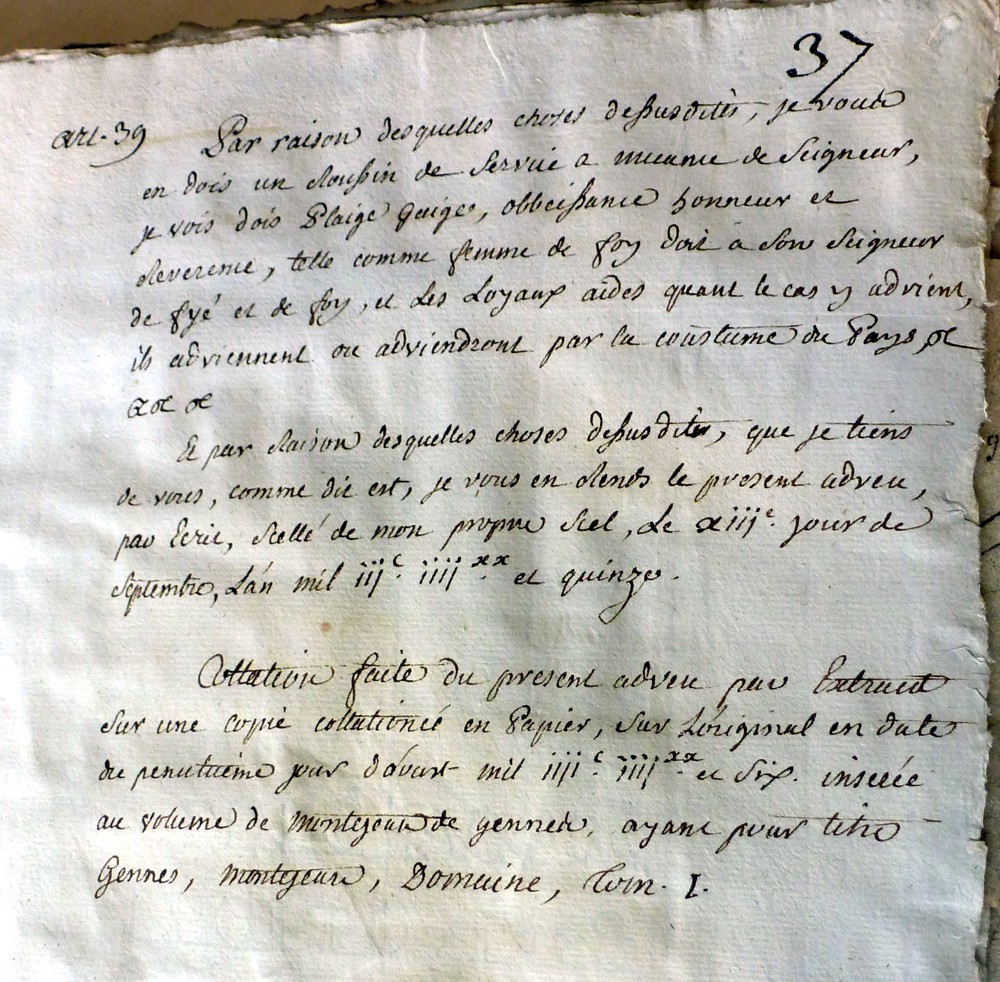 37
art. 39 Par raison desquelles choses dessusdites, je vous
en dois un Roussin de Service a muance de Seigneur,
je vois dois Plaige Gaige, obbeissance honneur et
Reverence, telle comme femme de foy doit a Son Seigneur
de fyé et de foy, et Les Loyaux aides quant le cas y advient,
ils adviennent ou adviendront par la coustume du Pays &
&& &
Et par Raison desquelles choses dessusdites, que je tiens
de vous, comme dit est, je vous en Rends le present adveu,
par Ecrit, Scellé de mon propre Scel, Le xiijᵉ. jour de
Septembre, L'an mil iijᶜ. iiijˣˣ. et quinze.
Collation faite du present adveu par Extrait
Sur une Copie collationeé en Papier, Sur L'original en date
du penultiéme jour d'avart mil iiijᶜ. iiijˣˣ. et Six. inserée
au volume de Montejean de gennes, ayant pour titre
Gennes, Montejean, Domaine, Tom. I.